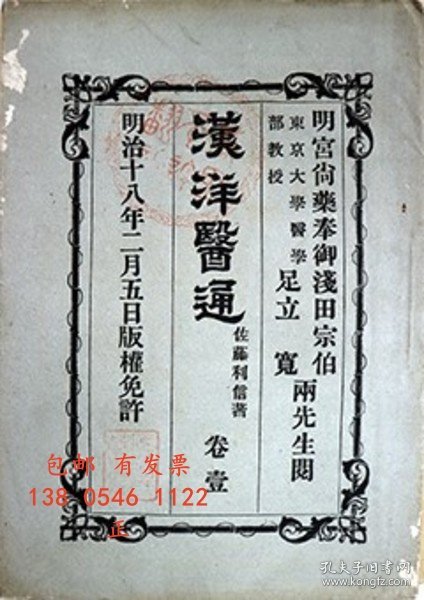 明宮尙藥奉御淺田宗伯
東京大學醫學
部教授
足立寬
兩先生閱
漢洋醫通
佐藤利信著
卷壹
明治十八年二月五日版權免許
包邮 有发票
138 0546 1122
正
孔夫子旧书网
www.kongfz.com